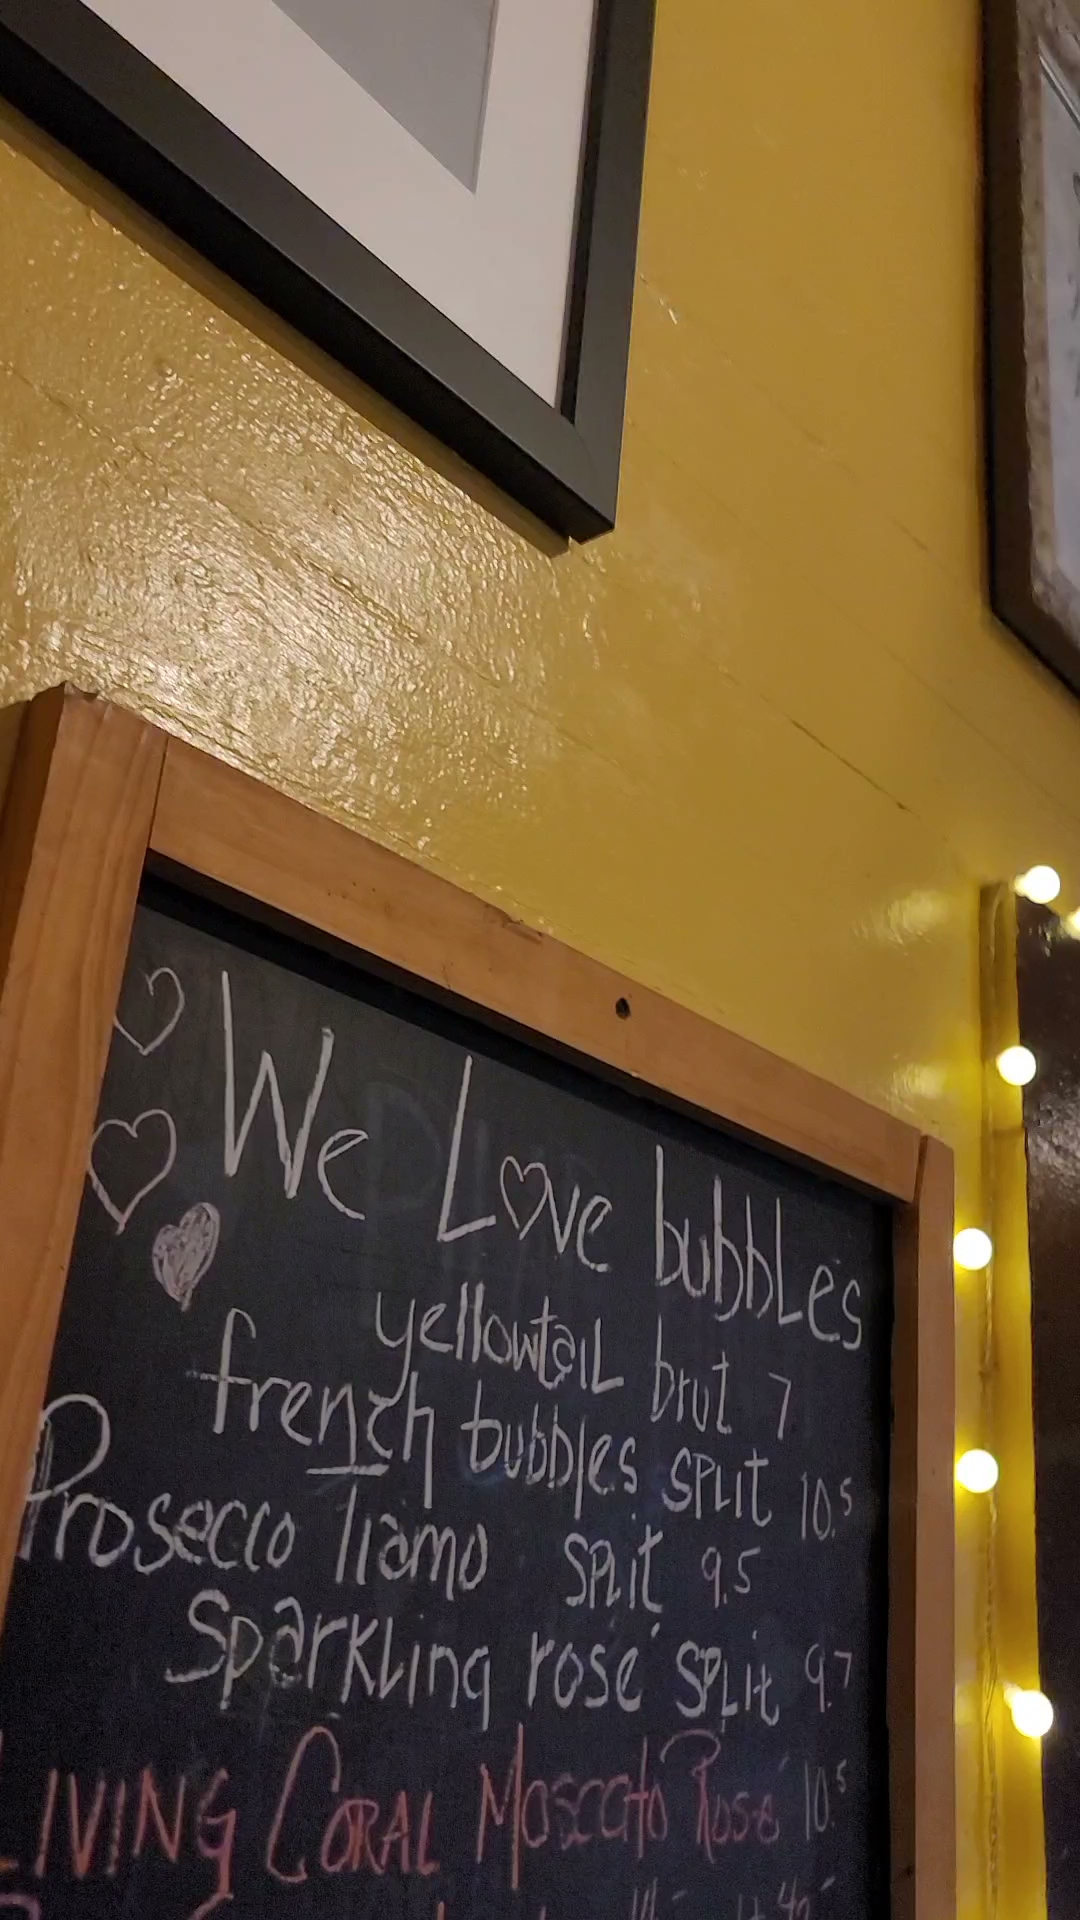 We Love bubbles
yellowtail brut 7
french bubbles split 10.5
Prosecco Tiamo split 9.5
Sparkling rosé split 9.7
LIVING CORAL MOSCATO ROSÉ 10.5